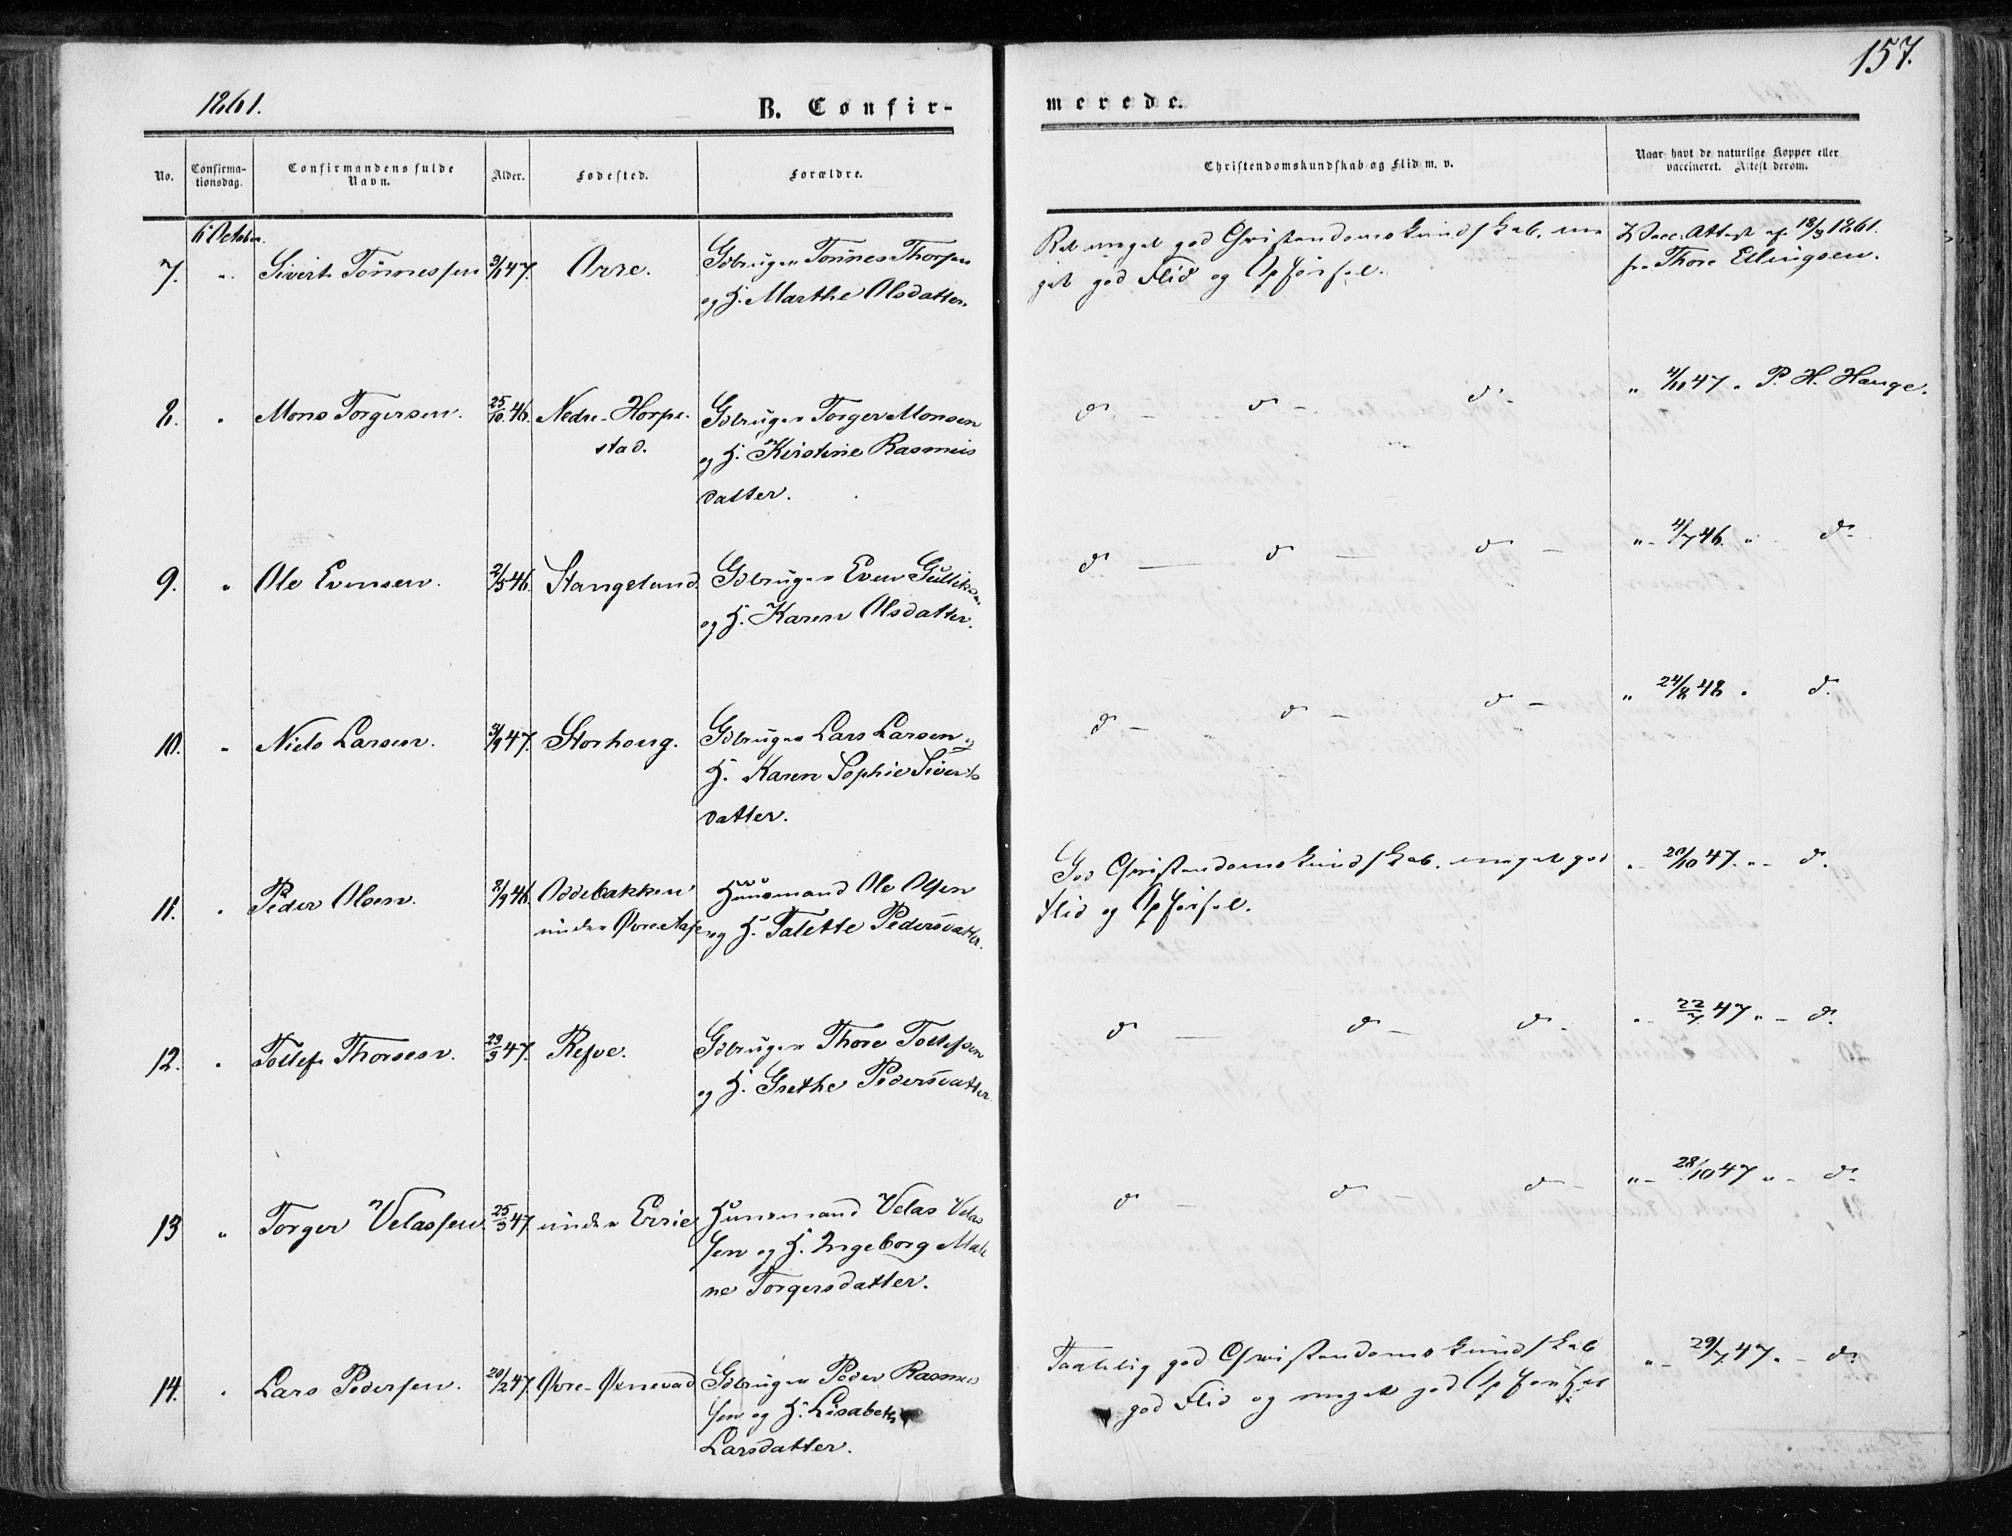 157.
1861.
B. Confir-
merede.
No.
Confirma-
tionsdag.
Confirmandens fulde
Navn.
Alder.
Fødested.
Forældre.
Christendomskundskab og Flid m. v.
Naar havt de naturlige Kopper eller
vaccineret. Attest derom.
6 October.
7. " Sivert Tönnessen 3/1 47. Orre. Gdbruger Tönnes Thorsen
og H. Marthe Olsdatter.
Ret meget god Christendomskundskab, me
get god Flid og Opførsel.
Vacc. Attest af 18/9 1861.
fra Thore Ellingsen.
8. " Mons Torgersen. 25/10 46. Nedre-Horpe-
stad.
Gdbruger Torger Monsen
og H. Kirstine Rasmus
datter.
do — do — do — " 4/10 47 " P. H. Hauge.
9. " Ole Evensen. 2/5 46. Stangeland. Gdbruger Even Gulliksen
og H. Karen Olsdatter.
do — do — do — " 4/7 46. " do.
10. " Niels Larsen. 3/9 47. Storhoug. Gdbruger Lars Larsen og
H. Karen Sophie Siverts
datter.
do — do — do — " 24/8 48 " do.
11. " Peder Olsen. 2/9 46. Oddebakken
under Øvre
Huusmand Ole Olsen
og H. Talette Pedersdatter.
God Christendomskundskab, meget god
Flid og Opførsel.
" 20/10 47. " — do.
12. " Tollef Thorsen. 29/3 47. Refve. Gdbruger Thore Tollefsen
og H. Grethe Pedersdatter
do — do — do — " 22/7 47 " — do.
13 " Torger Velassen. 25/3 47 under Errie Huusmand Velas Velas
sen og H. Ingeborg Mal
ne Torgersdatter.
do — do — do — " 28/10 47 " — do.
14. " Lars Pedersen. 20/2 47. Øvre-Øxnevad Gdbruger Peder Rasmus
sen og H. Lisabeth
Larsdatter.
Taalelig god Christendomskundskab
god Flid og meget god Opførsel.
" 29/7 47. " — do.